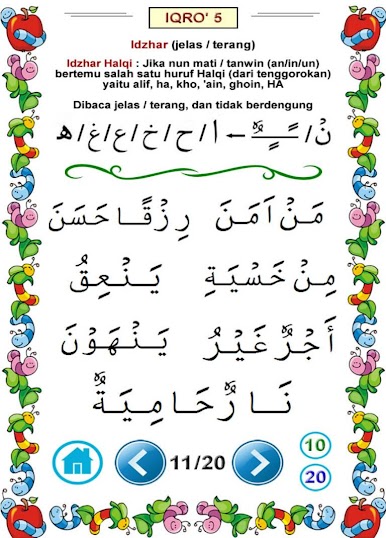 IQRO' 5
Idzhar (jelas / terang)
Idzhar Halqi : Jika nun mati / tanwin (an/in/un)
bertemu salah satu huruf Halqi (dari tenggorokan)
yaitu alif, ha, kho, 'ain, ghoin, HA
Dibaca jelas / terang, dan tidak berdengung
نْ/ ـًـٍـٌ ← ا/ح/خ/ع/غ/ه
مَنْ اَمَنَ رِزْقًا حَسَنَ
مِنْ خَسْيَةِ يَنْعِقُ
أَجْرٌ غَيْرُ يَنْهَوْنَ
نَارٌ حَامِيَةٌ
11/20
10
20